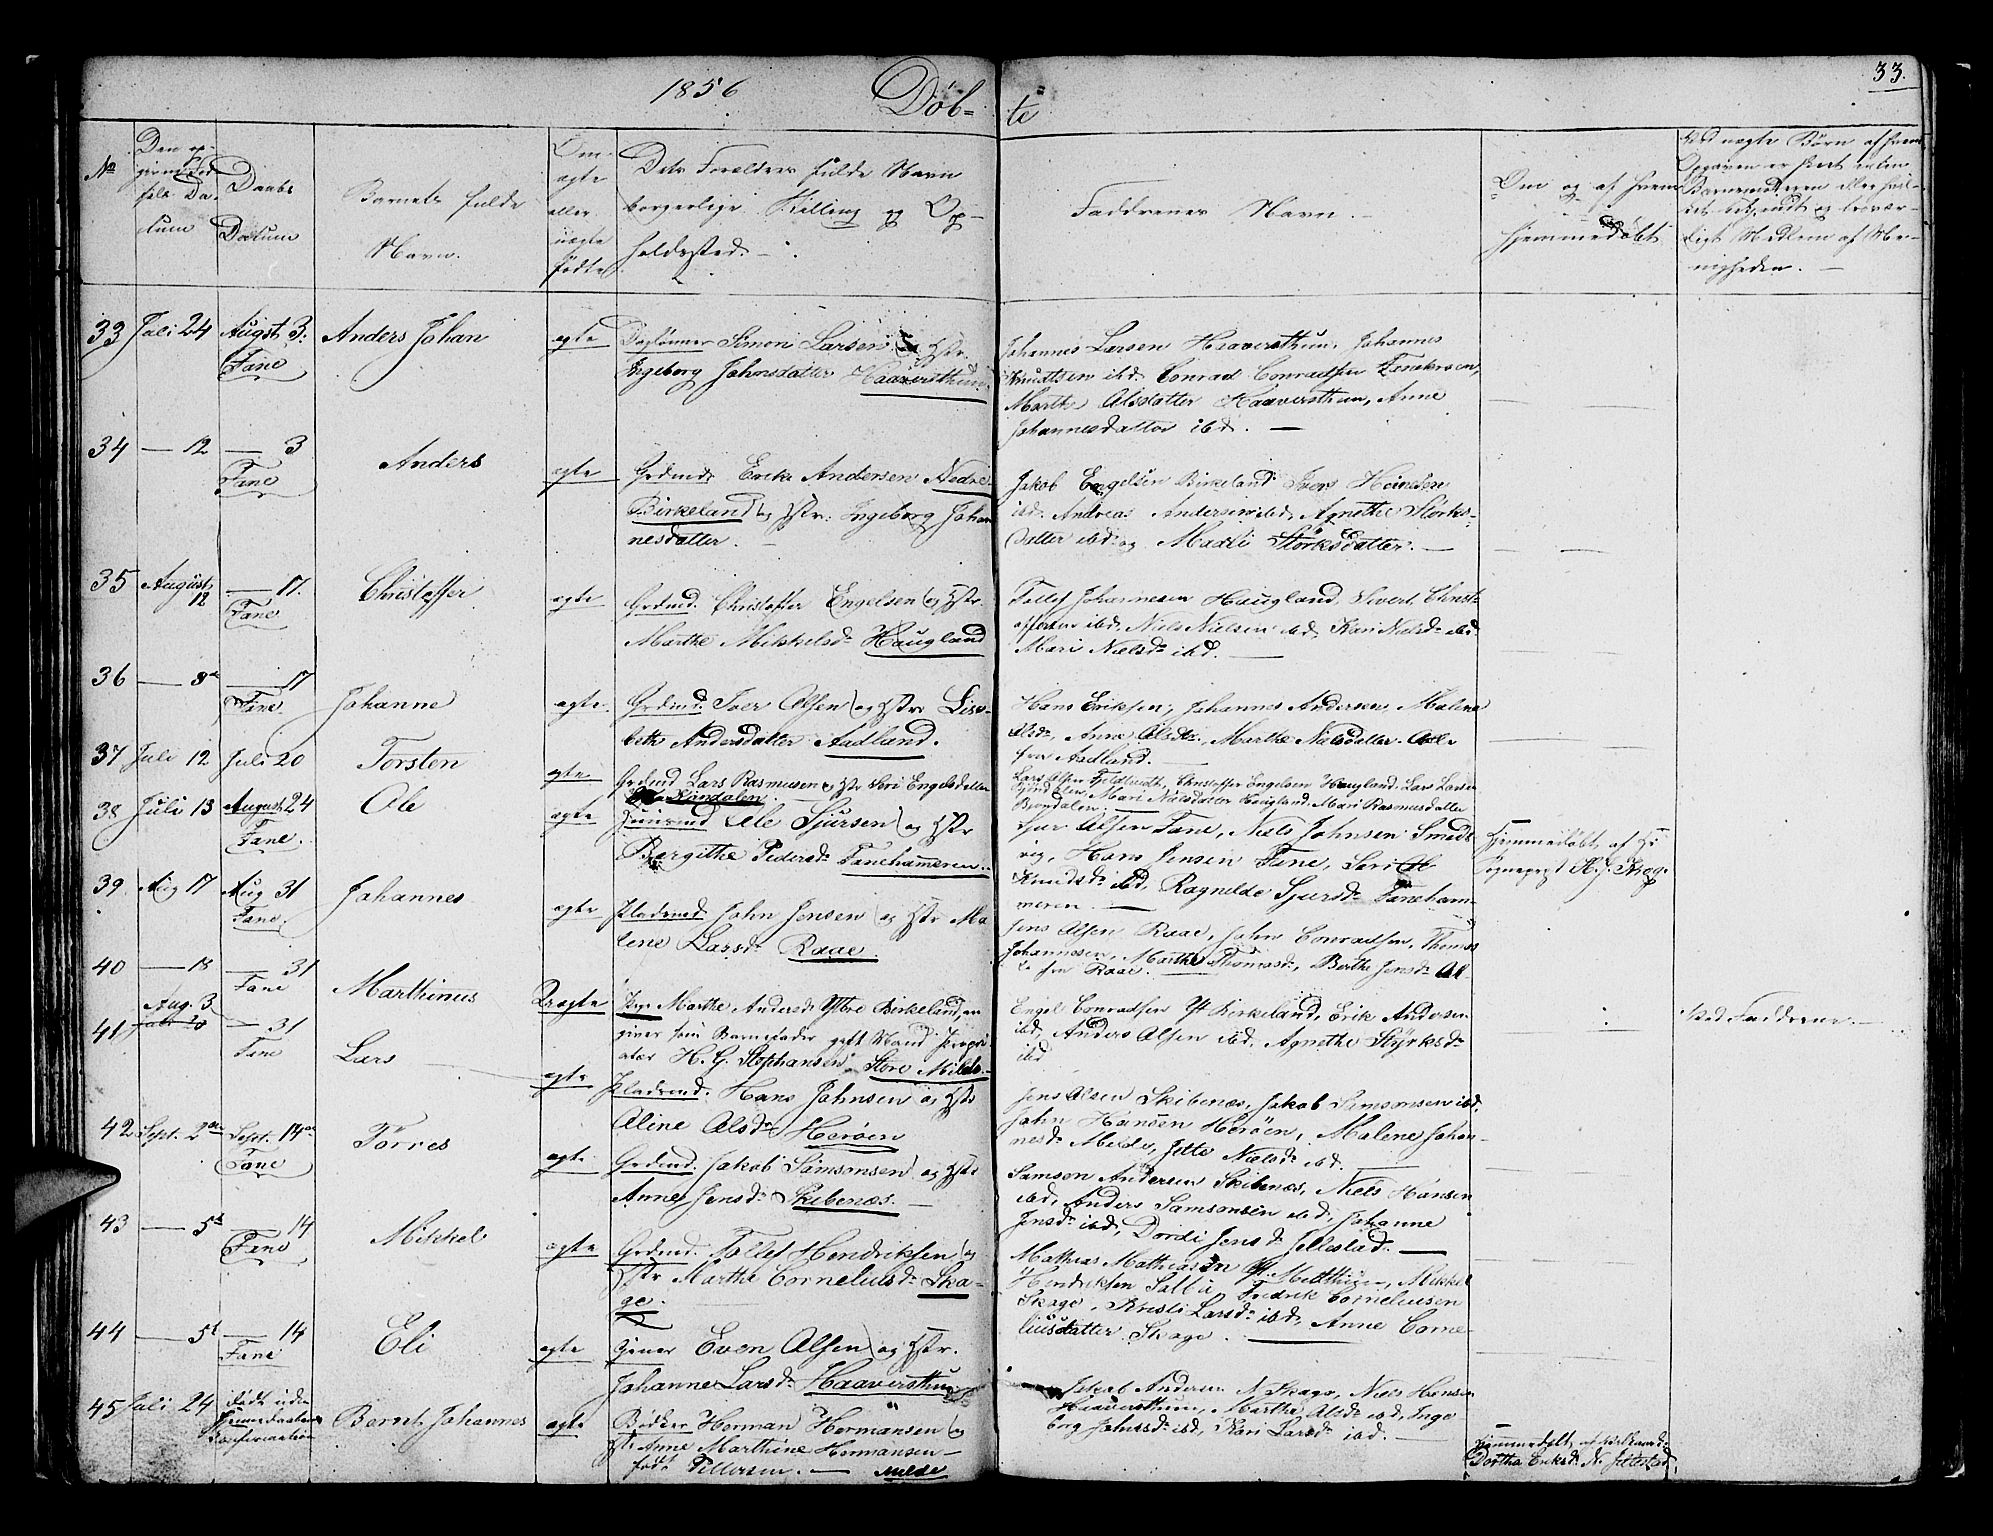 1856 Døb-
te
33.
No
Den op-
givne Fød
sels Da-
tum
Daabs
Datum
Barnets fulde
Navn.
Om
ægte
eller
uægte
fødte
Dets Forældres fulde Navn
borgerlige Stilling og Op-
holdssted.
Faddrenes Navn.
Om og af hvem
hjemmedøbt
Ved uægte Børn af hvem
Opgaven er skeet enten
Barnemoderen eller hvil-
ket bekjendt og troevær-
digt Medlem af Me-
nigheden.
33 Juli 24 Augst 3. Anders Johan ægte Dagslønner Simon Larsen og Hstr.
Fane
Ingeborg Johnsdatter Haaversthun
Johannes Larsen Haaversthun, Johannes
Knudtsen ibd. Conrad Conradsen
Marthe Olsdatter Haaversthun, Anne
Johannesdatter ibd.
34 — 12 — 3 Anders ægte Grdmd. Erik Andersen Nedre
Fane
Birkeland og Hstr. Ingeborg Johan
nesdatter.
Jakob Engelsen Birkeland Iver Heinesen
ibd. Andreas Andersen ibd, Agnethe Størks-
datter ibd. og Madli Størksdatter.
35 August 12 — 17. Christoffer ægte Grdmd. Christoffer Engelsen og Hstr.
Fane
Marthe Mikkelsd. Haugland
Tollef Johannesen Haugland, Sivert Christ-
offersen ibd, Niels Nielsen ibd, Kari Nielsd. ibd.
Mari Nielsd. ibd.
36 — 8de — 17 Johanne ægte Grdmd. Iver Olsen og Hstr Lis-
Fane
beth Andersdatter Aadland.
Hans Eriksen, Johannes Andersen, Malena
Olsd, Anna Olsd., Marthe Nielsdatter. Alle
fra Aadland.
37 Juli 12 Juli 20 Torsten ægte Grdmd Lars Rasmusen og Hstr Siri Engelsdatter
Lars Olsen Christoffer Engelsen Haugland. Lars Larsen
Mari Nielsdatter Haugland. Mari Rasmusdatter
38 Juli 13 August 24 Ole ægte Huusmd Ole Sjursen og Hstr
Fane.
Bergithe Pedersd. Fanehameren.
Sjur Olsen Fane, Niels Johnsen Smeds
vig, Hans Jensen Fane, Siri
Knudsd. ibd, Ragnilde Sjursd. Faneham-
meren.
Hjemmedøbt af Hr
Sogneprest
39 Aug 17 Aug 31 Johannes ægte Pladsmd. John Jensen og Hstr Ma
Fane.
lene Larsd. Raae.
Jens Olsen Raae, John Conradsen, Thomas
Johannesen, Marthe Thomasd., Berthe Jensd. Al-
le fra Raae.
40 — 18 — 31 Marthinus Uægte Pige Marthe Andersd. Ytre Birkeland, an
Fane
giver som Barnefader gift Mand
H. G. Stephansen, Store Milde.
Engel Conradsen Yt Birkeland, Erik Andersen
ibd, Anders Olsen ibd, Agnethe Styrksd.
ibd
Ved Faddrene.
41 Aug. 3 — 31 Lars ægte Pladsmd. Hans Johnsen og Hstr
Fane
Aline Olsd. Herøen
Jens Olsen Skibenæs, Jakob Samsonsen ibd.
John Hansen Herøen, Malene Johan-
nesd. Milde, Jette Nielsd. ibd.
42 Sept. 2den Sept. 14de Torres ægte Grdmd. Jakob Samsonsen og Hstr
Fane
Anne Jensd. Skibenæs.
Samson Andersen Skibenæs, Niels Hansen
ibd, Anders Samsonsen ibd, Johanne
Jensd. ibd, Dordi Jensd. Jellestad.
43 — 5t — 14 Mikkel ægte Grdmd. Tollef Hendriksen og
Fane
Hstr Marthe Corneliusd. Ska-
ge.
Mathias Mathiasen Mikkel
Hendriksen Fredrik Corneliusen
Skage, Kristi Larsd. ibd, Anne Corne-
liusdatter Skage.
44 — 5t — 14 Eli ægte Even Olsen og Hstr.
Fane
Johanne Larsd. Haaversthun
Jakob Andersen N. Skage, Niels Hansen
Haaversthun, Marthe Olsd. ibd, Inge
borg Johnsd. ibd, Kari Larsd. ibd.
45 Juli 24 Bernt Johannes ægte Bødker Herman Hermansen og
Hstr. Anne Marthine Hermansen
født Pettersen. — Milde
Hjemmedøbt af
Dorthea Eriksd. N. Jellestad.